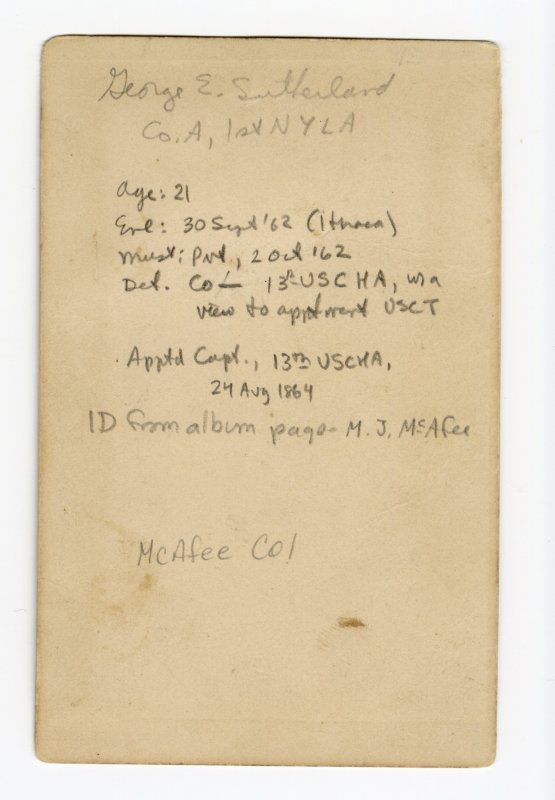 George E. Sutherland
Co. A, 1st NYLA
Age: 21
Enl: 30 Sept '62 (Ithaca)
Must: Pvt, 2 Oct '62
Det. Co L 13th USCHA, w a
view to apptment USCT
Apptd Capt., 13th USCHA,
24 Aug 1864
ID from album page - M. J. McAfee
McAfee Col